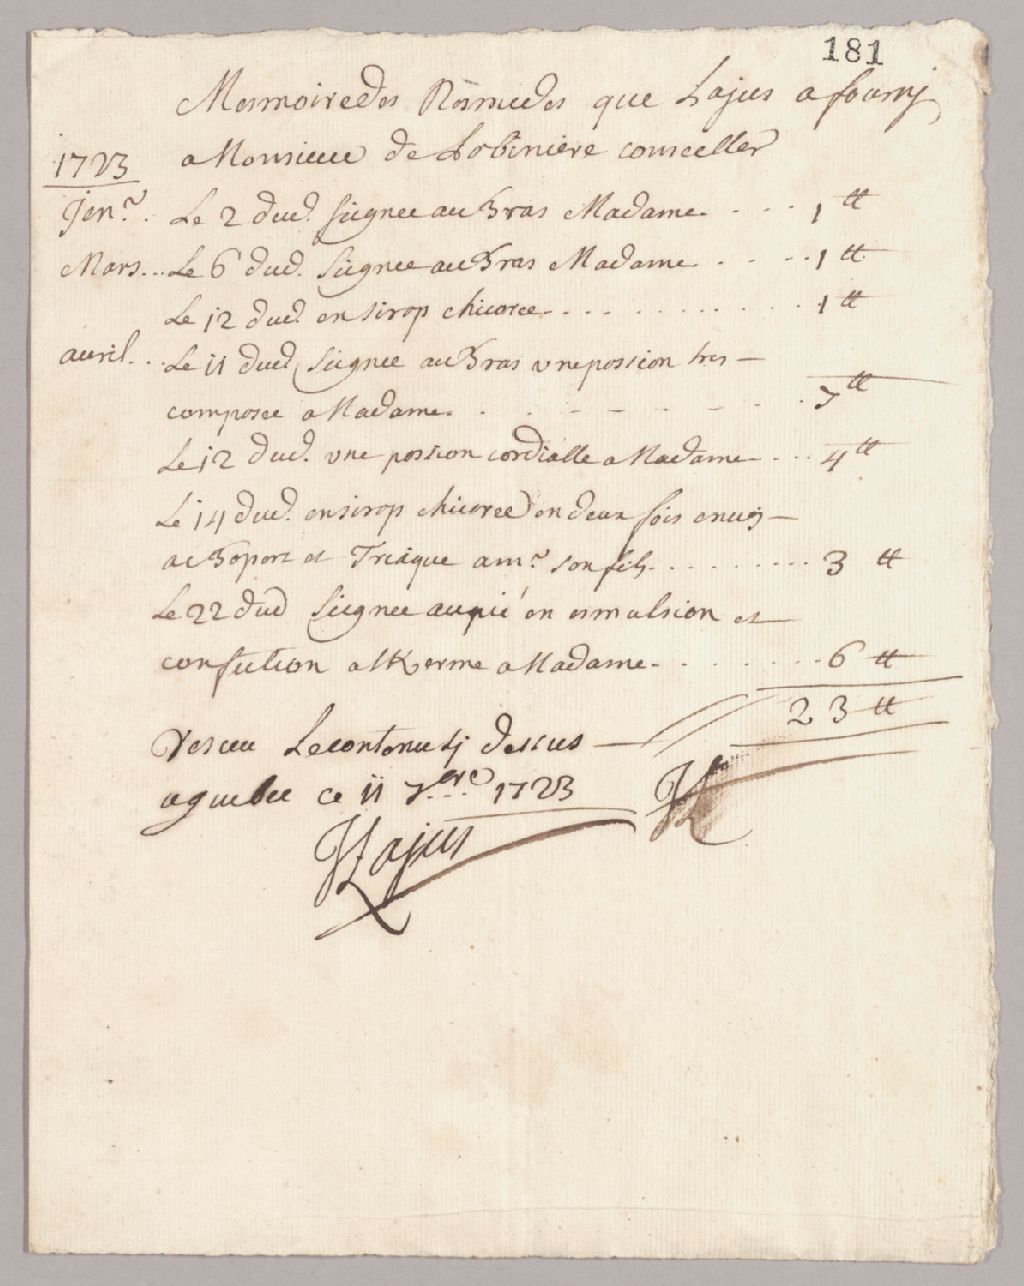 181
Mesmoire des Resmedes que Lajus a fourny
1723 a Monsieur de Lobiniere conseller
Jenr. Le 2 dud. signee au Bras Madame . . . . 1 tt
Mars... Le 6 dud. signee au Bras Madame . . . . . 1 tt
Le 12 dud. en sirop chicoree . . . . . . . . . . . . 1 tt
auril... Le 11 dud. signee au Bras vne possion tres -
composee a Madame . . . . . . . . . 7 tt
Le 12 dud. vne possion cordialle a Madame . . . . 4 tt
Le 14 dud. en sirop chicoree en deux fois
et Triaque a mr. son fils . . . . . . . . . 3 tt
Le 22 dud signee au pié en esmulsion et
confection alkerme a Madame . . . . . . . . . 6 tt
23 tt
Resceu Le contenu cy dessus
a quebec ce 11 7bre 1723
JLajus